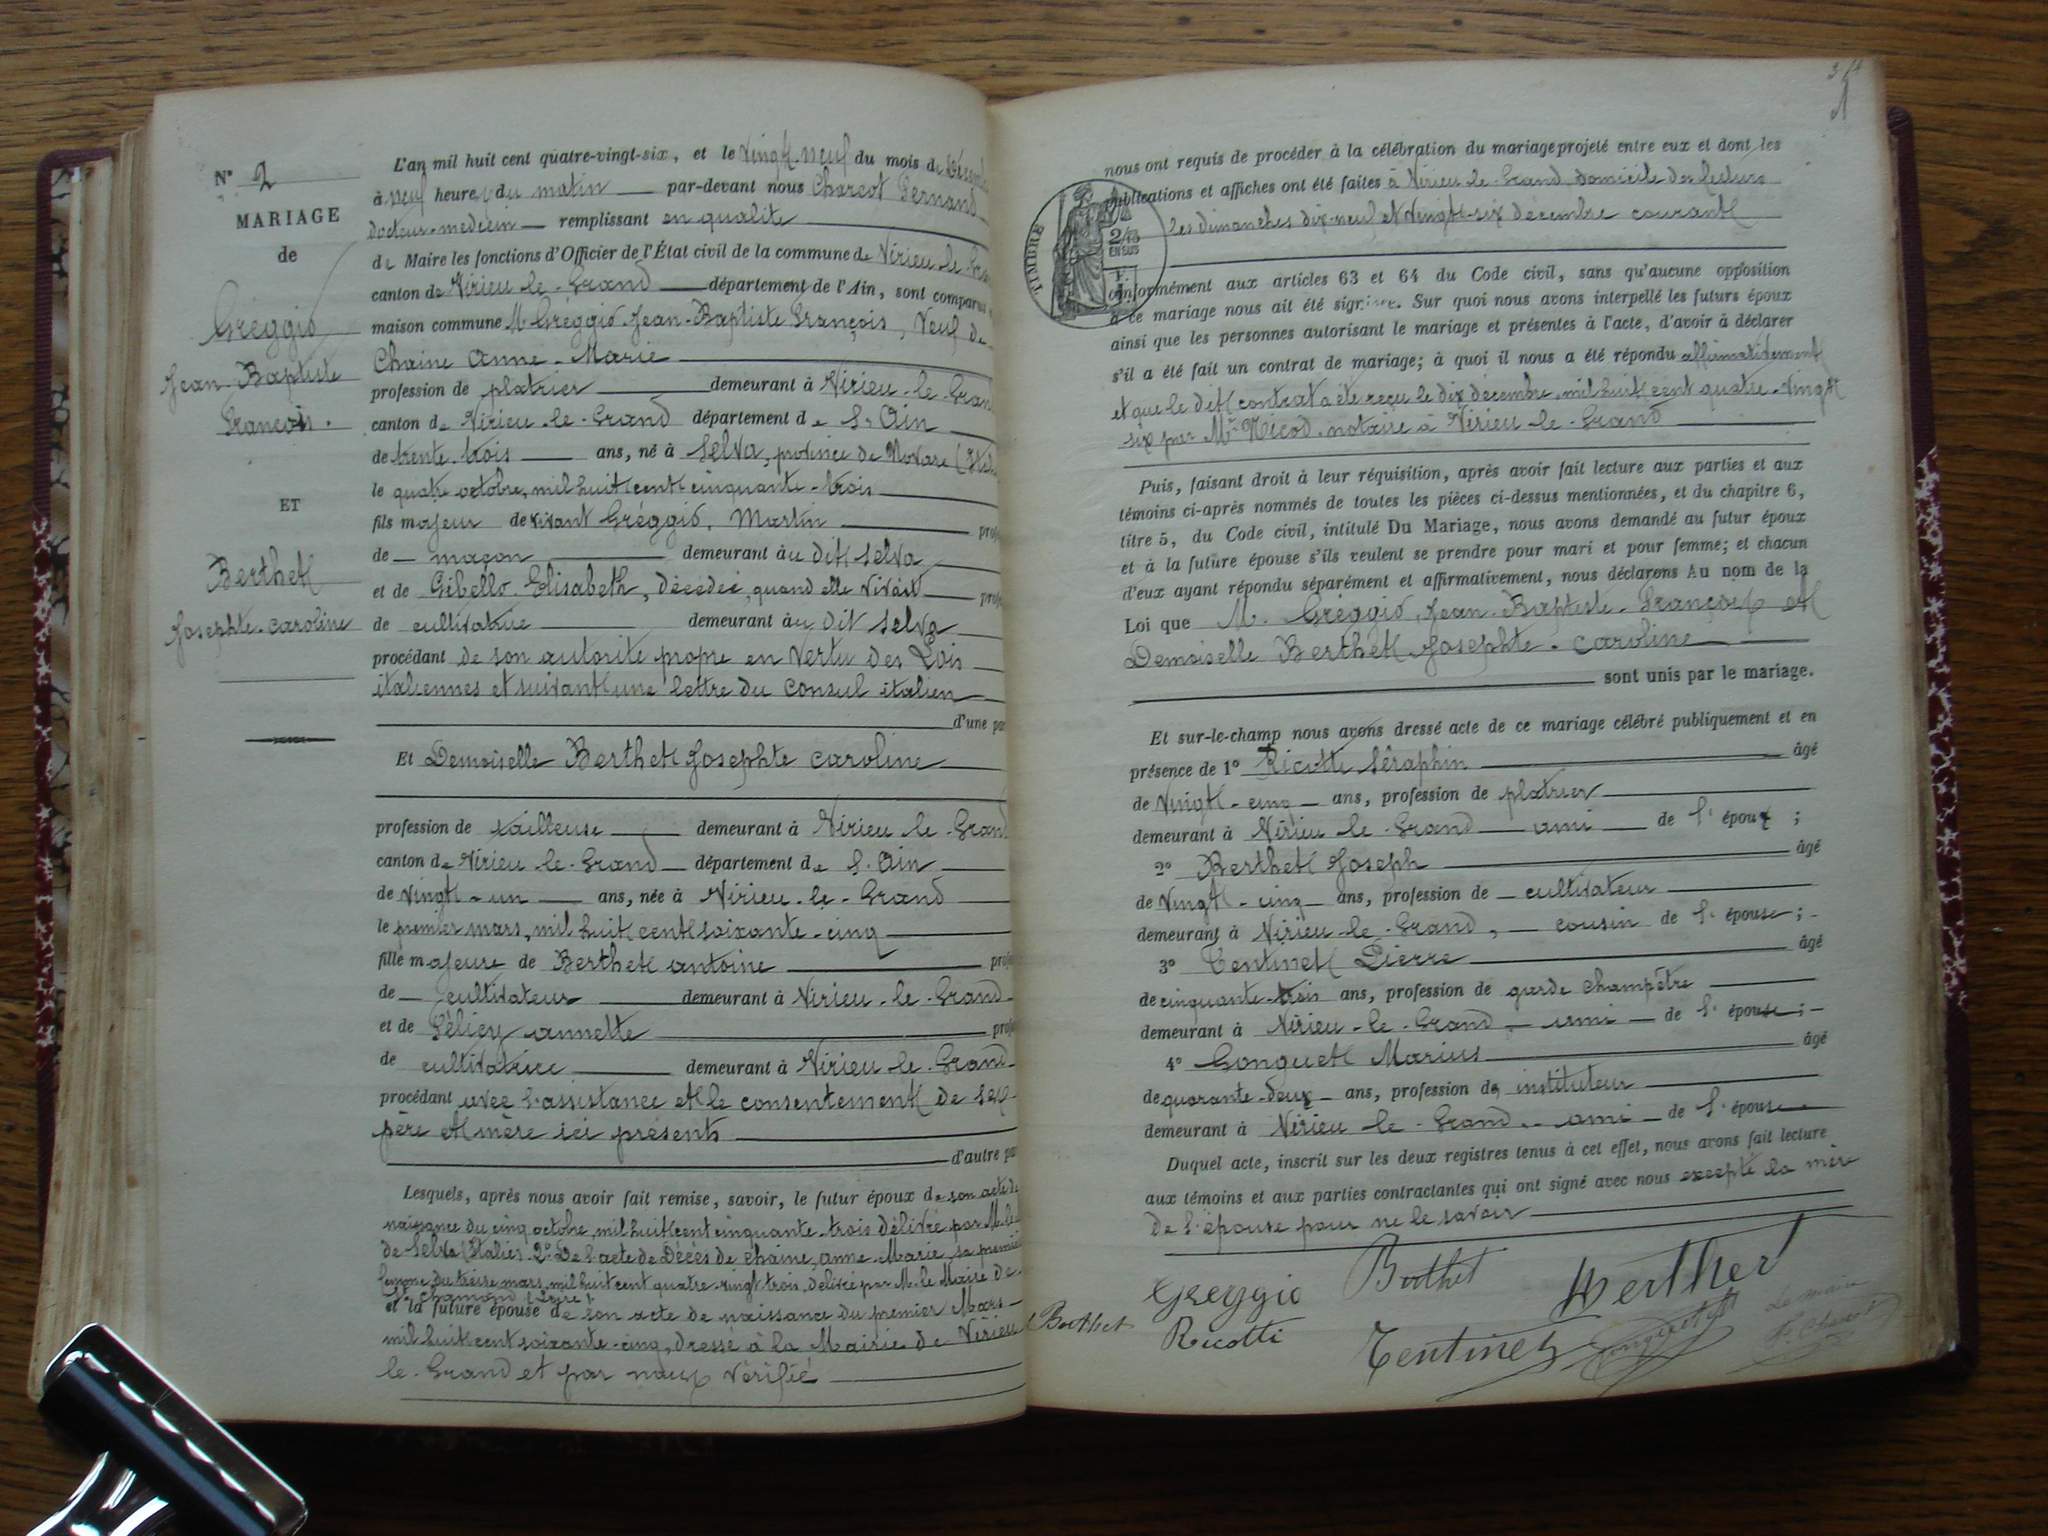 N° 2
MARIAGE
de
Gréggio
Jean-Baptiste
François.
ET
Berthet
Josephte-Caroline
L'an mil huit cent quatre-vingt-six, et le Vingt-neuf du mois de Décembre
à neuf heures du matin par-devant nous Charcot Fernand
docteur-médecin remplissant en qualité
de Maire les fonctions d'Officier de l'État civil de la commune de Virieu-le-Grand
canton de Virieu-le-Grand département de l'Ain, sont comparus
maison commune M. Gréggio Jean-Baptiste François, Veuf de
Chaine Anne-Marie
profession de platrier demeurant à Virieu-le-Grand
canton de Virieu-le-Grand département de l'Ain
de trente-trois ans, né à Selva, province de Novare (Italie)
le quatre octobre, mil huit cent cinquante-trois
fils majeur de vivant Gréggio, Martin prof
de maçon demeurant àu dit Selva
et de Gibello Elisabeth, décédée, quand elle vivait prof
de cultivatrice demeurant àu dit Selva
procédant de son autorité propre en vertu des Lois
italiennes et suivant une lettre du Consul italien
d'une pa
Et Demoiselle Berthet Josephte Caroline
profession de tailleuse demeurant à Virieu-le-Grand
canton de Virieu-le-Grand département de l'Ain
de Vingt-un ans, née à Virieu-le-Grand
le premier mars, mil huit cent soixante-cinq
fille majeure de Berthet antoine prof
de cultivateur demeurant à Virieu-le-Grand
et de annette prof
de cultivatrice demeurant à Virieu-le-Grand
procédant avec l'assistance et le consentement de ses
père et mère ici présents
d'autre pa
Lesquels, après nous avoir fait remise, savoir, le futur époux de son acte de
naissance du cinq octobre, mil huit cent cinquante-trois délivré par M. le
de Selva (Italie). 2° De l'acte de Décès de Chaine, anne-Marie, sa première
femme du treize mars, mil huit cent quatre-vingt trois, délivré par M. le Maire de
St Chamond (Loire)
et la future épouse de son acte de naissance du premier Mars
mil huit cent soixante-cinq, dressé à la Mairie de Virieu
le-Grand et par nous vérifié
nous ont requis de procéder à la célébration du mariage projeté entre eux et dont les
publications et affiches ont été faites à Virieu-le-Grand, domicile des futurs
les dimanches dix-neuf et Vingt-six décembre courant
TIMBRE
EN SUS
conformément aux articles 63 et 64 du Code civil, sans qu'aucune opposition
à ce mariage nous ait été signifiée. Sur quoi nous avons interpellé les futurs époux
ainsi que les personnes autorisant le mariage et présentes à l'acte, d'avoir à déclarer
s'il a été fait un contrat de mariage; à quoi il nous a été répondu affirmativement
et que le dit contrat a été reçu le dix décembre mil huit cent quatre-vingt
six par Me Nicod, notaire à Virieu-le-Grand
Puis, faisant droit à leur réquisition, après avoir fait lecture aux parties et aux
témoins ci-après nommés de toutes les pièces ci-dessus mentionnées, et du chapitre 6,
titre 5, du Code civil, intitulé Du Mariage, nous avons demandé au futur époux
et à la future épouse s'ils veulent se prendre pour mari et pour femme; et chacun
d'eux ayant répondu séparément et affirmativement, nous déclarons Au nom de la
Loi que M. Gréggio, Jean-Baptiste-François et
Demoiselle Berthet Josephte-Caroline
sont unis par le mariage.
Et sur-le-champ nous avons dressé acte de ce mariage célébré publiquement et en
présence de 1° Ricotti Séraphin âgé
de Vingt-cinq ans, profession de platrier
demeurant à Virieu-le-Grand ami de l'époux ;
2° Berthet Joseph âgé
de Vingt-cinq ans, profession de cultivateur
demeurant à Virieu-le-Grand, cousin de l'épouse ;
3° Tentinet Pierre âgé
de cinquante-trois ans, profession de garde champêtre
demeurant à Virieu-le-Grand ami de l'épouse ;
4° Gonguet Marius âgé
de quarante-deux ans, profession de instituteur
demeurant à Virieu-le-Grand ami de l'épouse.
Duquel acte, inscrit sur les deux registres tenus à cet effet, nous avons fait lecture
aux témoins et aux parties contractantes qui ont signé avec nous excepté la mère
de l'épouse pour ne le savoir
Greggio Berthet Berthet
Berthet Ricotti Tentinet
Le maire